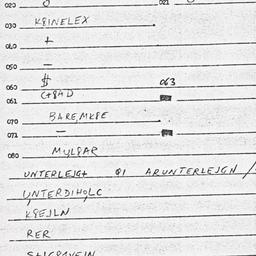 020 0 021
030 K8INELEX
040 +
050 -
060 $ 063
061 C+84D
070 BAREMK8E
071 -
080 MYL8AR
UNTERLEJG+ 01 ARUNTERLEJGN /
UNTERDIHOLC
K8EJLN
RER